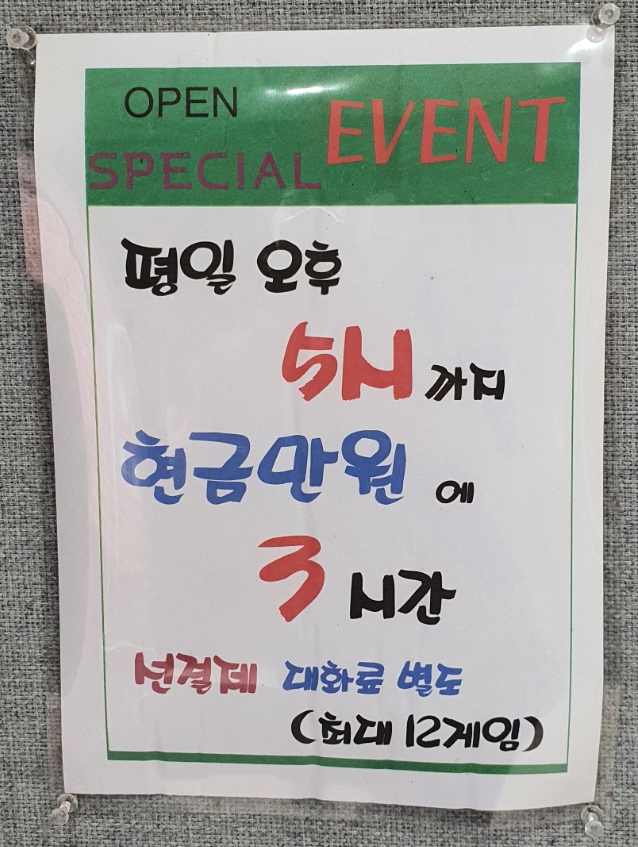 OPEN
SPECIAL EVENT
평일 오후
5시 까지
현금만원 에
3 시간
선결제 대화료 별도
(최대 12게임)